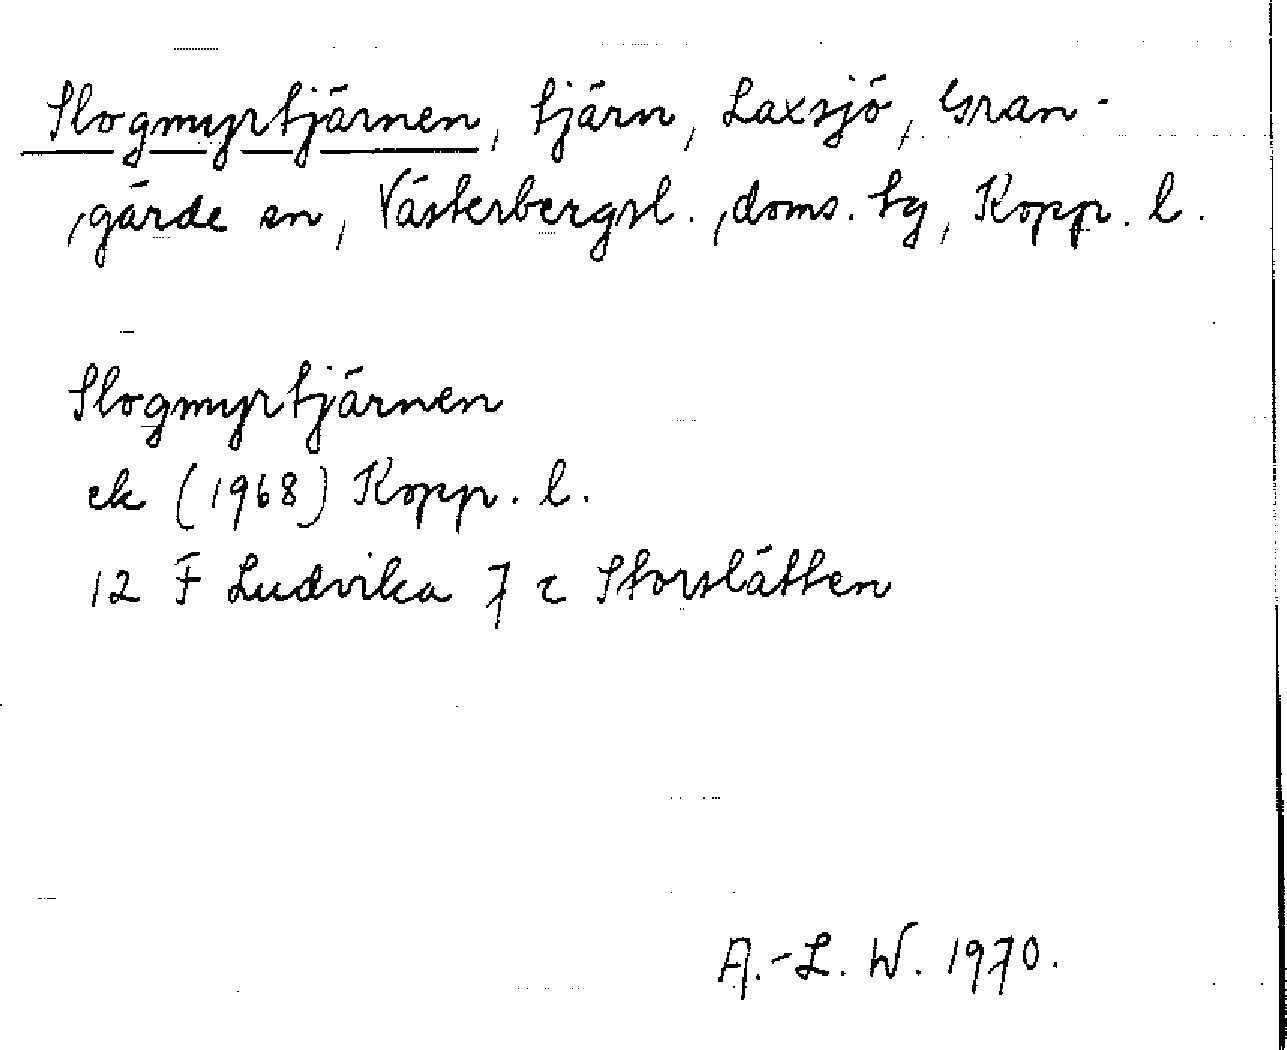 Slogmyrtjärnen, tjärn, Laxsjö, Gran-
gärde sn, Västerbergsl. doms. tg, Kopp. l.
Slogmyrtjärnen
ek (1968) Kopp. l.
12 F Ludvika 7 c Storslätten
A.-L. W. 1970.